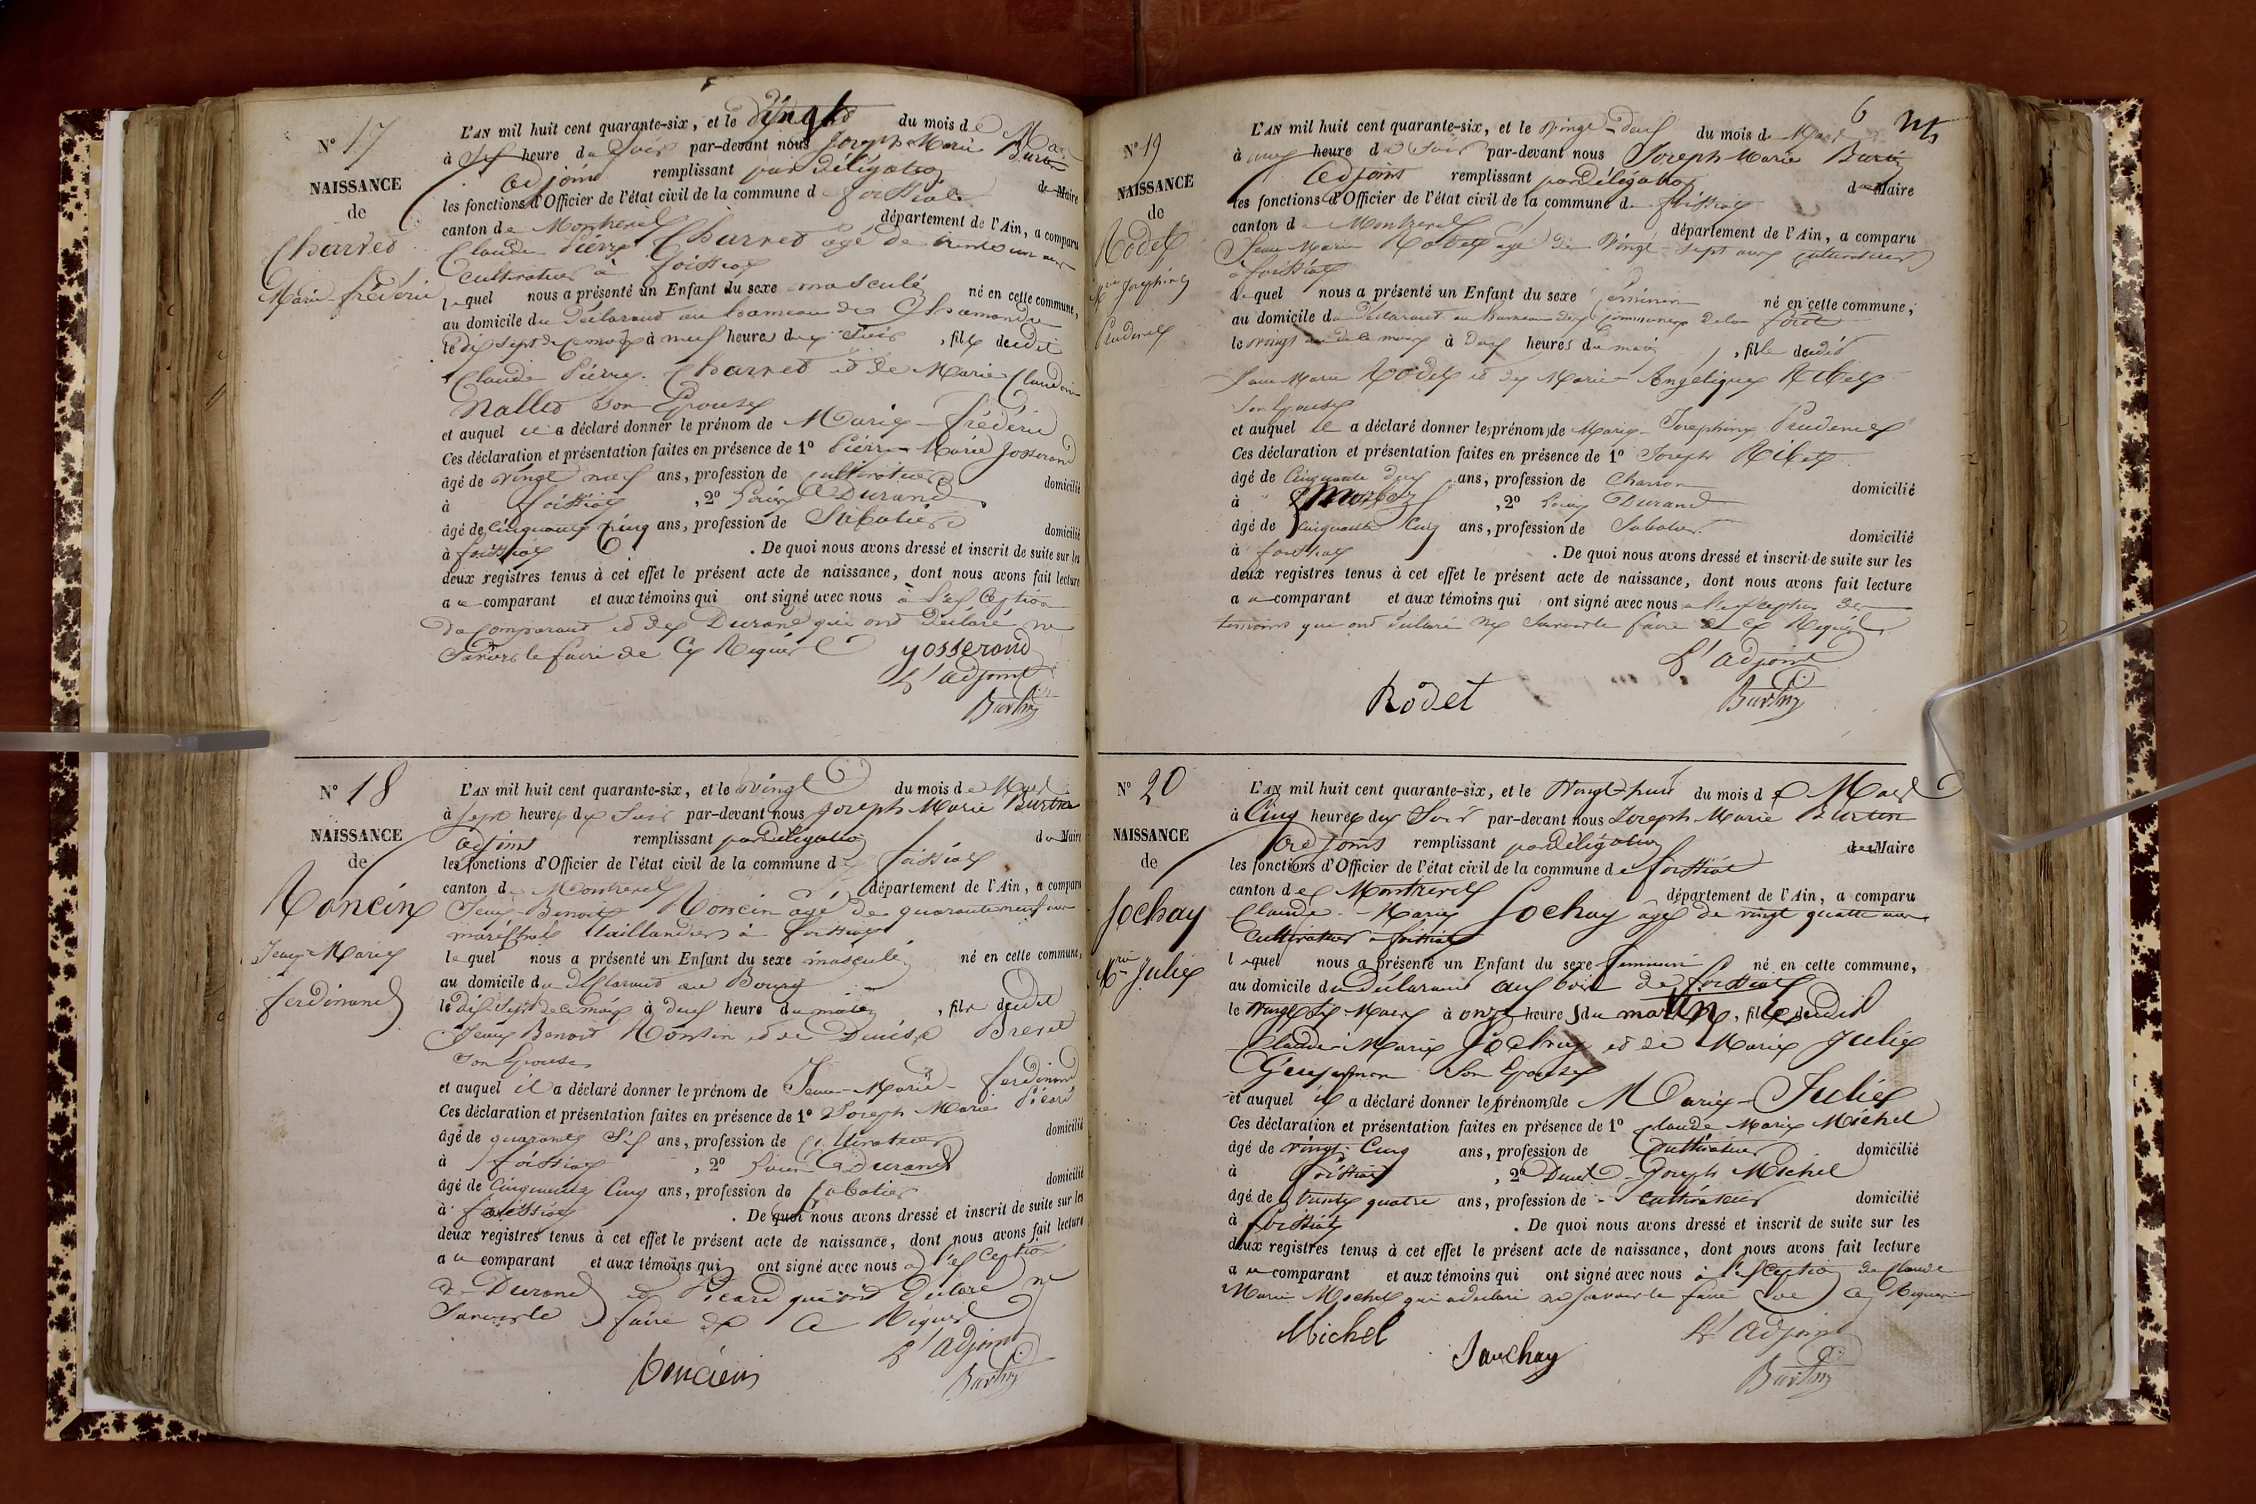 N° 17
NAISSANCE
de
Charvet
Marie-fréderic
L'AN mil huit cent quarante-six, et le vingt du mois de Mars
à six heure du Soir par-devant nous Joseph Marie Burtin
adjoint remplissant par délégation du Maire
les fonctions d'Officier de l'état civil de la commune de foissiat
canton de Montrevel département de l'Ain, a comparu
Claude Pierre Charvet âgé de trente un ans
cultivateur à foissiat
lequel nous a présenté un Enfant du sexe masculin né en cette commune,
au domicile du déclarant au hameau de
le dix sept de ce mois à neuf heure du Soir, fils dudit
Claude Pierre Charvet et de Marie Claudine
Nallet son Epouse
et auquel il a déclaré donner le prénom de Marie-fréderic
Ces déclaration et présentation faites en présence de 1° Pierre Marie Josserand
âgé de vingt neuf ans, profession de cultivateur domicilié
à foissiat, 2° Louis Durand
âgé de cinquante cinq ans, profession de Sabotier domicilié
à foissiat. De quoi nous avons dressé et inscrit de suite sur les
deux registres tenus à cet effet le présent acte de naissance, dont nous avons fait lecture
au comparant et aux témoins qui ont signé avec nous à l'exception
du Comparant et de Durand qui ont déclaré ne
Savoir le faire de ce Requis
yosserand
L'adjoint
Burtin
N° 18
NAISSANCE
de
Roncin
Jean-Marie
ferdinand
L'AN mil huit cent quarante-six, et le vingt du mois de Mars
à sept heures du Soir par-devant nous Joseph Marie Burtin
adjoint remplissant par délégation du Maire
les fonctions d'Officier de l'état civil de la commune de foissiat
canton de Montrevel département de l'Ain, a comparu
Jean-Benoit Roncin âgé de quarante neuf ans
maréchal taillandier à foissiat
lequel nous a présenté un Enfant du sexe masculin né en cette commune,
au domicile du déclarant au Bourg
le dix sept de ce mois à deux heure du matin, fils dudit
Jean Benoit Roncin et de Denise Brevet
son Epouse
et auquel il a déclaré donner le prénom de Jean-Marie-ferdinand
Ces déclaration et présentation faites en présence de 1° Joseph Marie Picard
âgé de quarante six ans, profession de Cultivateur domicilié
à foissiat, 2° Louis Durand
âgé de cinquante cinq ans, profession de sabotier domicilié
à foissiat. De quoi nous avons dressé et inscrit de suite sur les
deux registres tenus à cet effet le présent acte de naissance, dont nous avons fait lecture
au comparant et aux témoins qui ont signé avec nous à l'exception
de Durand et Picard qui ont déclaré ne
Savoir le faire de ce Requis
L'adjoint
Burtin
6
N° 19
NAISSANCE
de
Rodet
Mie Joséphine
Prudence
L'AN mil huit cent quarante-six, et le vingt-deux du mois de Mars
à heure du Soir par-devant nous Joseph Marie Burtin
adjoint remplissant par délégation du Maire
les fonctions d'Officier de l'état civil de la commune de foissiat
canton de Montrevel département de l'Ain, a comparu
Jean Marie Rodet âgé de vingt-sept ans cultivateur
à foissiat
lequel nous a présenté un Enfant du sexe féminin né en cette commune,
au domicile du déclarant au hameau des communes de la forêt
le vingt un de ce mois à deux heures du matin, fille dudit
Jean Marie Rodet et de Marie-Angelique Ribet
son Epouse
et auquel il a déclaré donner les prénom de Marie-Joséphine Prudence
Ces déclaration et présentation faites en présence de 1° Joseph Ribet
âgé de Cinquante deux ans, profession de Charron domicilié
à, 2° Louis Durand
âgé de cinquante cinq ans, profession de Sabotier domicilié
à foissiat. De quoi nous avons dressé et inscrit de suite sur les
deux registres tenus à cet effet le présent acte de naissance, dont nous avons fait lecture
au comparant et aux témoins qui ont signé avec nous à l'exception des
temoins qui ont déclaré ne Savoir le faire de ce Requis
L'adjoint
Rodet
Burtin
N° 20
NAISSANCE
de
Jochay
Mie Julie
L'AN mil huit cent quarante-six, et le Vingt-huit du mois de Mars
à Cinq heures du Soir par-devant nous Joseph Marie Burtin
adjoint remplissant par délégation du Maire
les fonctions d'Officier de l'état civil de la commune de foissiat
canton de Montrevel département de l'Ain, a comparu
Claude-Marie Jochay âgé de vingt quatre ans
Cultivateur à foissiat
lequel nous a présenté un Enfant du sexe féminin né en cette commune,
au domicile du déclarant aux bois de foissiat
le vingt six Mars à onze heures du matin, fille dudit
Claude Marie Jochay et de Marie Julie
son Epouse
et auquel il a déclaré donner les prénoms de Marie-Julie
Ces déclaration et présentation faites en présence de 1° Claude Marie Michel
âgé de vingt Cinq ans, profession de Cultivateur domicilié
à foissiat, 2° Denis-Joseph Michel
âgé de trente quatre ans, profession de Cultivateur domicilié
à foissiat. De quoi nous avons dressé et inscrit de suite sur les
deux registres tenus à cet effet le présent acte de naissance, dont nous avons fait lecture
au comparant et aux témoins qui ont signé avec nous à l'exception de Claude
Marie Michel qui a déclaré ne savoir le faire de ce Requis
Michel
Jauchay
L'adjoint
Burtin